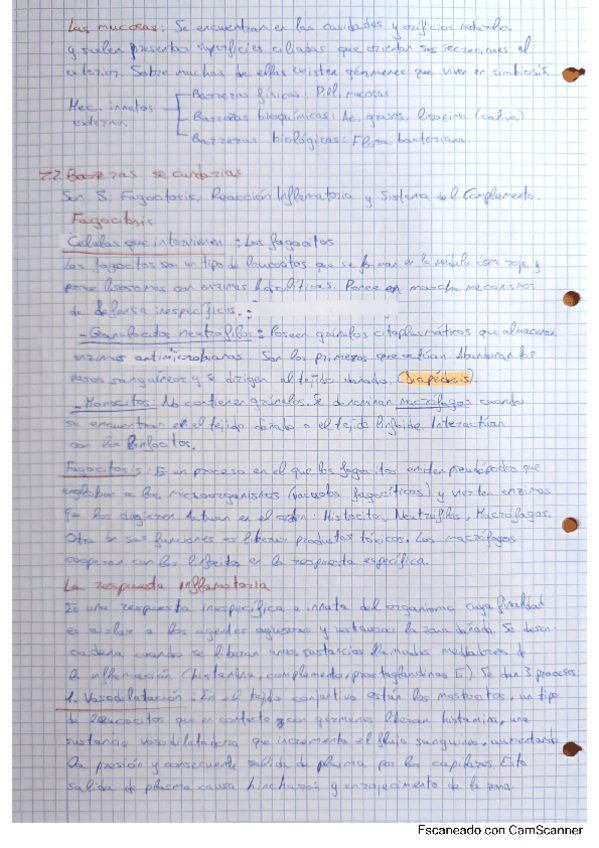 Las mucosas: Se encuentran en las cavidades y orificios naturales
y suelen presentar superficies ciliadas que orientan sus secreciones al
exterior. Sobre muchas de ellas existen gérmenes que viven en simbiosis.
Mec. innatos externos
Barreras físicas: Piel, mucosas
Barreras bioquímicas: Ac. grasos, lisocima (saliva)
Barreras biológicas: Flora bacteriana.
7.2 Barreras secundarias
Son 3: Fagocitosis, Reacción Inflamatoria y Sistema del Complemento.
Fagocitosis
Células que intervienen: Los fagocitos
Los fagocitos son un tipo de leucocitos que se forman en la médula ósea roja y
posee lisosomas con enzimas hidrolíticas. Ponen en marcha mecanismos
de defensa inespecíficos.:
- Granulocitos neutrófilos: Poseen gránulos citoplasmáticos que almacenan
enzimas antimicrobianas. Son los primeros que actúan. Abandonan los
vasos sanguíneos y se dirigen al tejido dañado. (Diapédesis)
- Monocitos: No contienen gránulos. Se denominan macrófagos cuando
se encuentran en el tejido dañado o el tejido linfoide. Interactúan
con los linfocitos.
Fagocitosis: Es un proceso en el que los fagocitos emiten pseudópodos que
engloban a los microorganismos (vacuolas fagocíticas) y vierten enzimas
que los digieren. Actúan en el orden: Histiocitos, Neutrófilos, Macrófagos.
Otra de sus funciones es liberar productos tóxicos. Los macrófagos
cooperan con los linfocitos en la respuesta específica.
La respuesta inflamatoria
Es una respuesta inespecífica e innata del organismo cuya finalidad
es aislar a los agentes agresores y restaurar la zona dañada. Se desen-
cadena cuando se liberan unas sustancias llamadas mediadores de
la inflamación (histamina, complemento, prostaglandinas E). Se dan 3 procesos.
1. Vasodilatación: En el tejido conjuntivo están los mastocitos, un tipo
de leucocitos que en contacto con gérmenes liberan histamina, una
sustancia vasodilatadora que incrementa el flujo sanguíneo, aumentando
la presión y consecuente salida de plasma por los capilares. Esta
salida de plasma causa hinchazón y enrojecimiento de la zona.
Escaneado con CamScanner